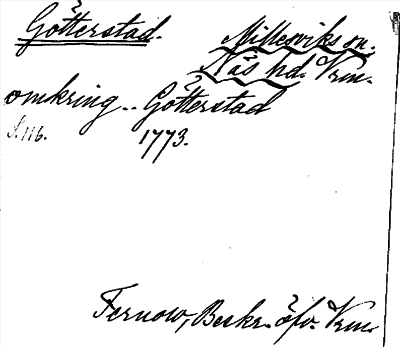 Götterstad. Millesviks sn.
Näs hd. Vrm.
omkring .. Götterstad
S. 116. 1773.
Fernow, Beskr. öfv. Vrm.